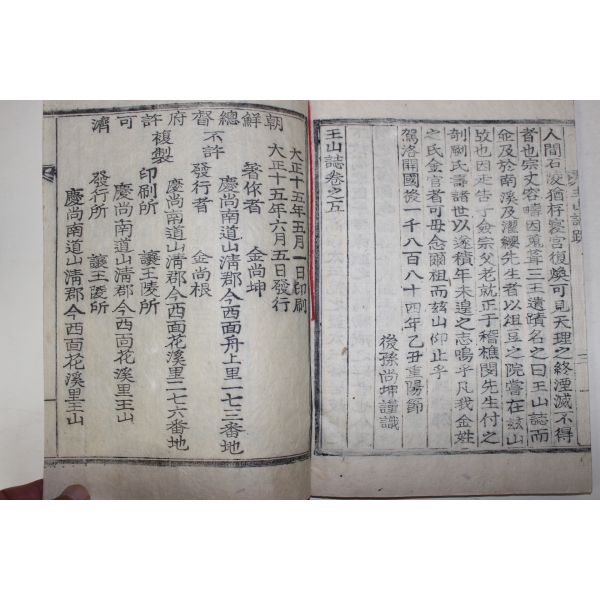 人間石陵猶稱寢宮復奐可見天理之終湮滅不得
者也宗丈容疇因蒐葺三王遺蹟名之曰王山誌而
並及於南溪及濯纓先生者以俎豆之院嘗在玆山
故也因走告于金宗父老就正于稽樵閔先生付之
剞劂氏壽諸世以遂積年未遑之志嗚乎凡我金姓
之氏金官者可毋念爾祖而玆山仰止乎
駕洛開國後一千八百八十四年乙丑重陽節
後孫尙坤謹識
王山誌卷之五
大正十五年五月一日印刷
大正十五年六月五日發行
著作者 金尙坤
慶尙南道山淸郡今西面舟上里一七三番地
發行者 金尙根
慶尙南道山淸郡今西面花溪里二七六番地
印刷所 讓王陵所
慶尙南道山淸郡今西面花溪里王山
發行所 讓王陵所
慶尙南道山淸郡今西面花溪里王山
不許
複製
朝鮮總督府許可濟